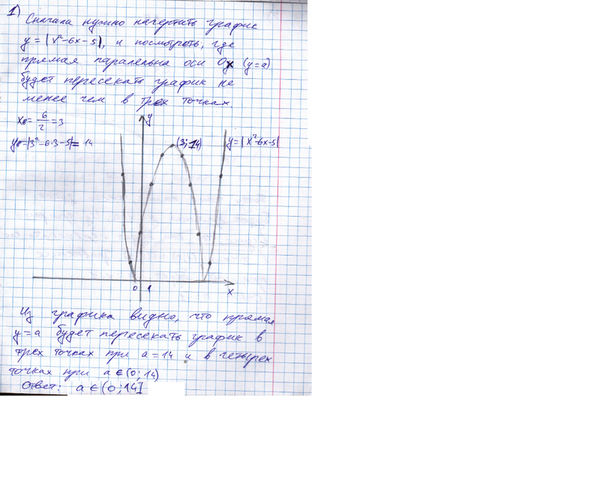 1) Сначала нужно начертить график
y = |x²-6x-5|, и посмотреть, где
прямая паралельна оси Ox (y=a)
будет пересекать график не
менее чем в трех точках
x0 = 6/2 = 3
y0 = |3²-6·3-5| = 14
y
(3;14)
y = |x²-6x-5|
0 1
x
Из графика видно, что прямая
y=a будет пересекать график в
трех точках при a=14 и в четырех
точках при a∈(0;14)
Ответ: a∈(0;14]